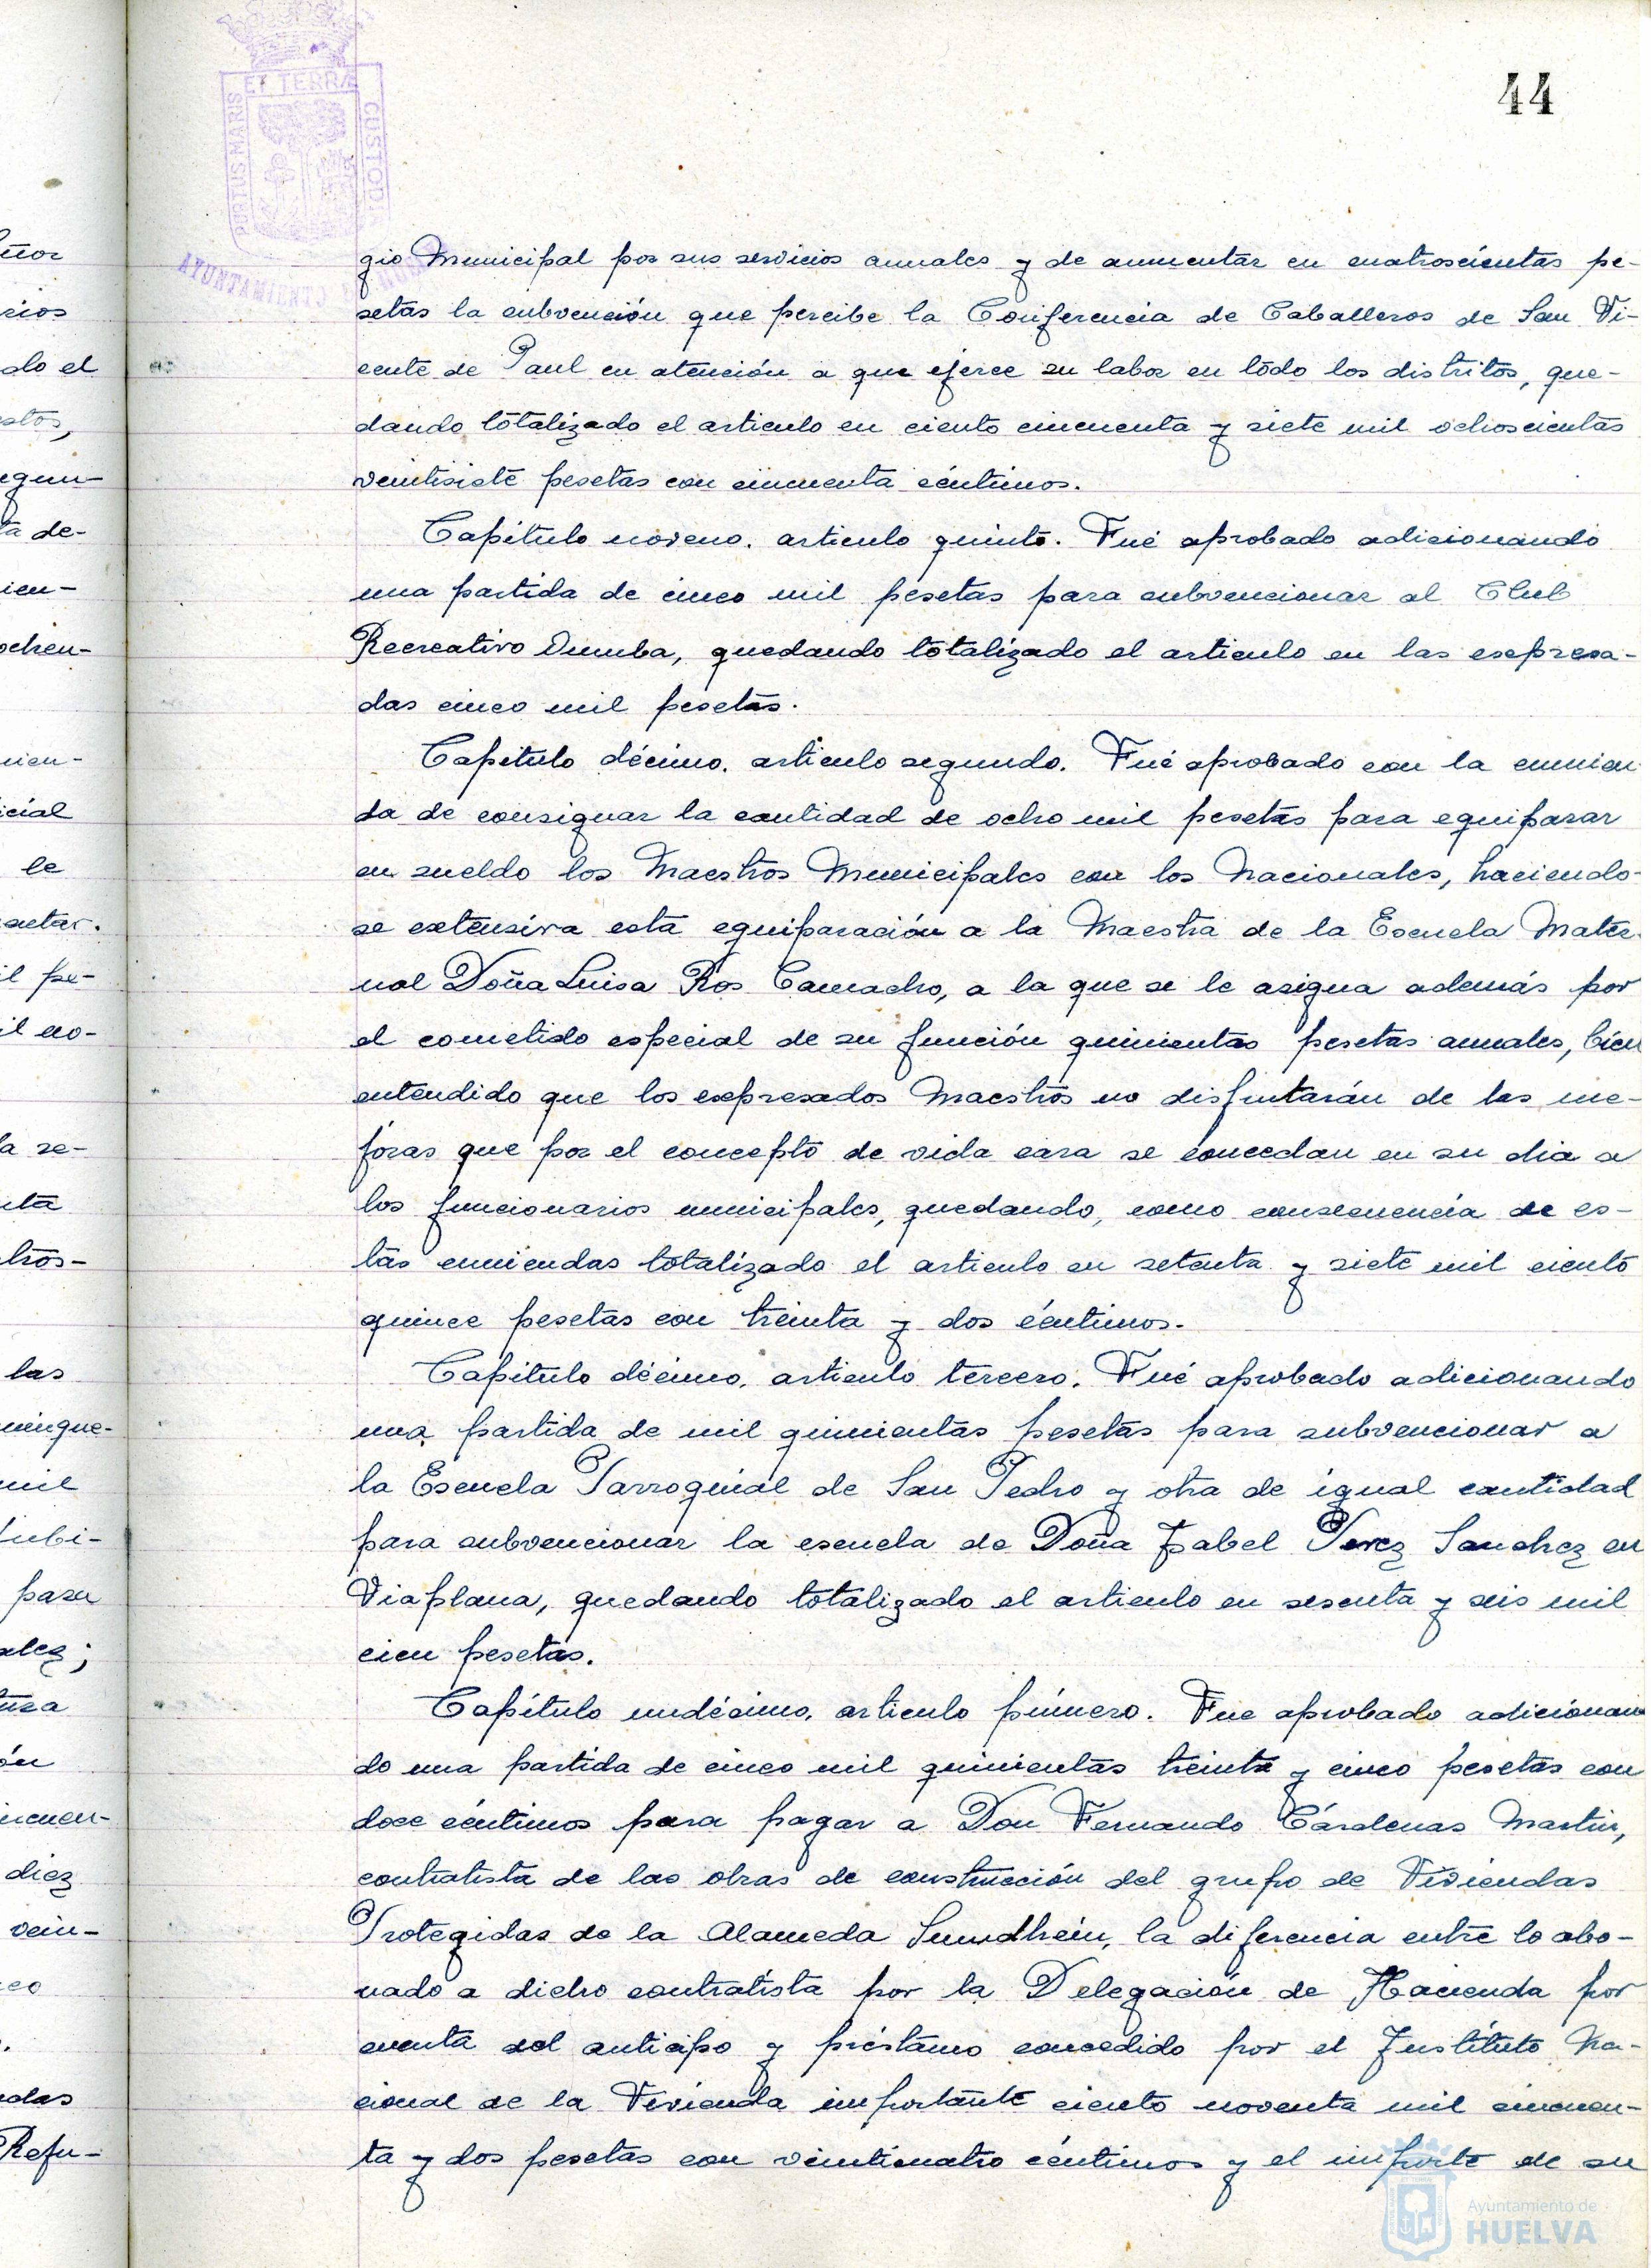 44
PORTUS MARIS ET TERRÆ CUSTODIA
AYUNTAMIENTO
gio Municipal por sus servicios anuales y de aumentar en cuatroscientas pe-
setas la subvención que percibe la Conferencia de Caballeros de San Vi-
cente de Paul en atención a que ejerce su labor en todo los distritos, que-
dando totalizado el articulo en ciento cincuenta y siete mil ochoscientas
veintisiete pesetas con cincuenta céntimos.
Capítulo noveno. articulo quinto. Fué aprobado adicionando
una partida de cinco mil pesetas para subvencionar al Club
Recreativo Onuba, quedando totalizado el articulo en las expresa-
das cinco mil pesetas.
Capitulo décimo. articulo segundo. Fué aprobado con la enmien-
da de consignar la cantidad de ocho mil pesetas para equiparar
en sueldo los Maestros Municipales con los Nacionales, haciendo-
se extensiva esta equiparación a la Maestra de la Escuela Mater-
nal Doña Luisa Ros Camacho, a la que se le asigna además por
el cometido especial de su función quinientas pesetas anuales, bien
entendido que los expresados Maestros no disfrutarán de las me-
joras que por el concepto de vida cara se concedan en su dia a
los funcionarios municipales, quedando, como consecuencia de es-
tas enmiendas totalizado el articulo en setenta y siete mil ciento
quince pesetas con treinta y dos céntimos.
Capitulo décimo. articulo tercero. Fué aprobado adicionando
una partida de mil quinientas pesetas para subvencionar a
la Escuela Parroquial de San Pedro y otra de igual cantidad
para subvencionar la escuela de Doña Isabel Perez Sanchez en
Viaplana, quedando totalizado el articulo en sesenta y seis mil
cien pesetas.
Capítulo undécimo. articulo primero. Fue aprobado adicionan
do una partida de cinco mil quinientas treinta y cinco pesetas con
doce céntimos para pagar a Don Fernando Cárdenas Martin,
contratista de las obras de construcción del grupo de Viviendas
Protegidas de la Alameda Sumdhein, la diferencia entre lo abo-
nado a dicho contratista por la Delegación de Hacienda por
cuenta del anticipo y préstamo concedido por el Instituto Na-
cional de la Vivienda importante ciento noventa mil cincuen-
ta y dos pesetas con veinticuatro céntimos y el importe de su
Ayuntamiento de
HUELVA